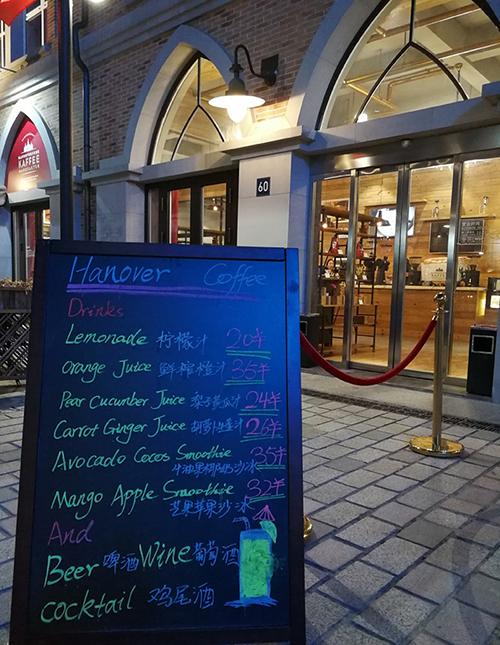 KAFFEE
60
Hanover Coffee
Drinks
Lemonade 柠檬汁 20￥
Orange Juice 鲜榨橙汁 35￥
Pear Cucumber Juice 梨子黄瓜汁 24￥
Carrot Ginger Juice 胡萝卜生姜汁 26￥
Avocado Cocos Smoothie 35￥
牛油果椰奶沙冰
Mango Apple Smoothie 32￥
芒果苹果沙冰
And
Beer 啤酒 Wine 葡萄酒
cocktail 鸡尾酒